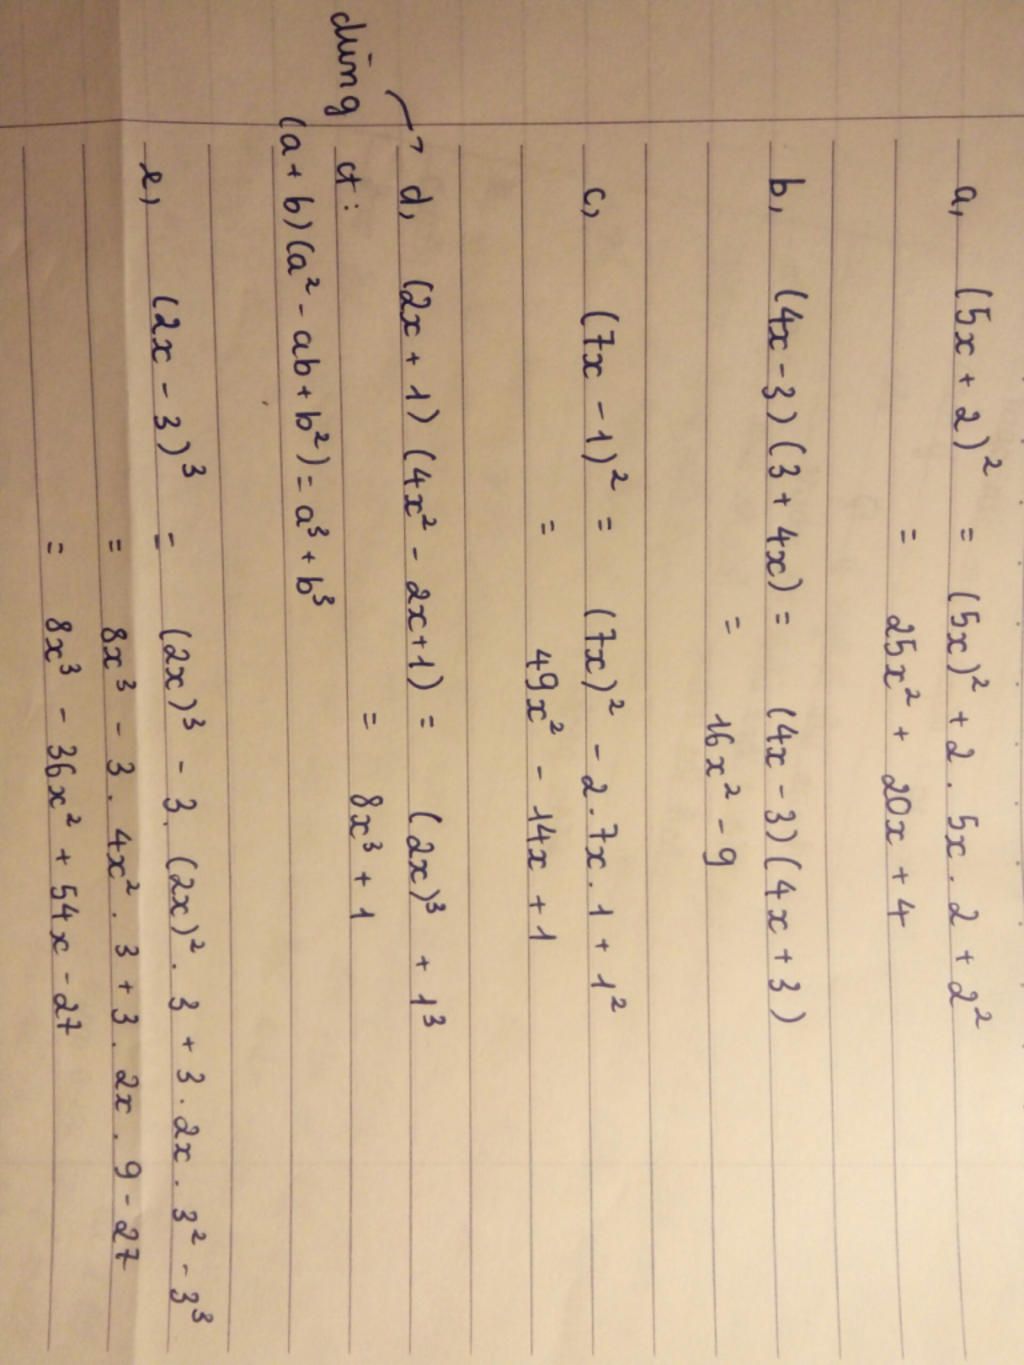 a, (5x + 2)² = (5x)² + 2 . 5x . 2 + 2²
= 25x² + 20x + 4
b, (4x - 3)(3 + 4x) = (4x - 3)(4x + 3)
= 16x² - 9
c, (7x - 1)² = (7x)² - 2 . 7x . 1 + 1²
= 49x² - 14x + 1
d, (2x + 1)(4x² - 2x + 1) = (2x)³ + 1³
dùng ct: = 8x³ + 1
(a + b)(a² - ab + b²) = a³ + b³
e, (2x - 3)³ = (2x)³ - 3. (2x)² . 3 + 3 . 2x . 3² - 3³
= 8x³ - 3 . 4x² . 3 + 3 . 2x . 9 - 27
= 8x³ - 36x² + 54x - 27